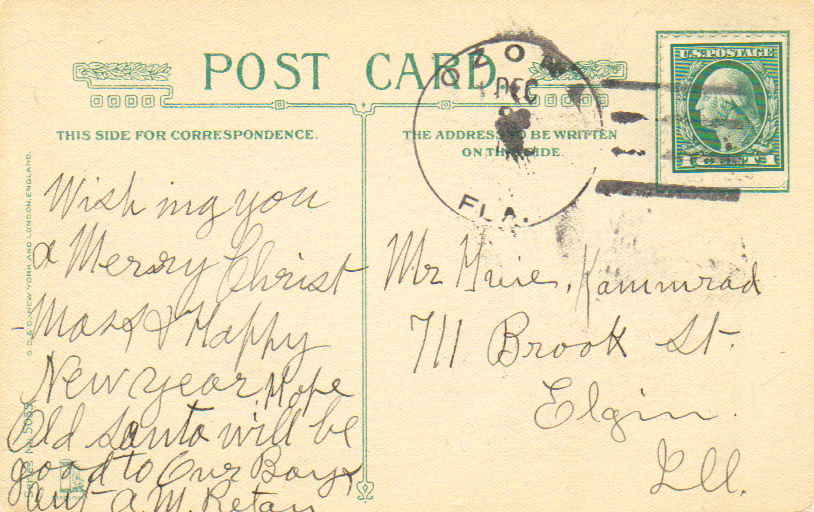 POST CARD
THIS SIDE FOR CORRESPONDENCE.
THE ADDRESS TO BE WRITTEN
ON THIS SIDE
OZONA
DEC
FLA.
U.S. POSTAGE
Wishing you
a Merry Christ
Mass & Happy
New year, Hope
Old Santa will be
good to Our Boys
A.M. Retan
Mr Kammrad
711 Brook St.
Elgin.
Ill.
NEW YORK AND LONDON, ENGLAND.
Series No 5089